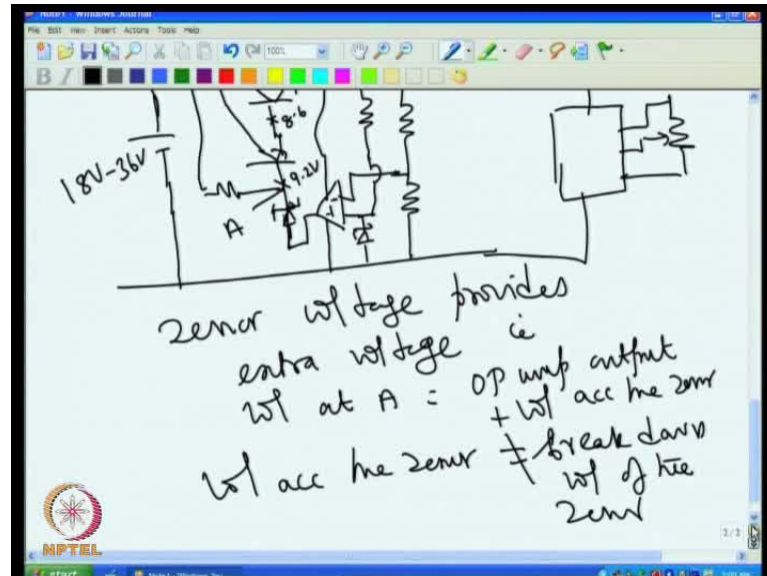 Note1 - Windows Journal
File Edit View Insert Actions Tools Help
100%
B I
18V-36V
8.6
9.2V
A
zener voltage provides
extra voltage ie
vol at A = OP amp output
+ vol acc the zener
vol acc the zener ≠ break down
vol of the
zener
2/2
NPTEL
start